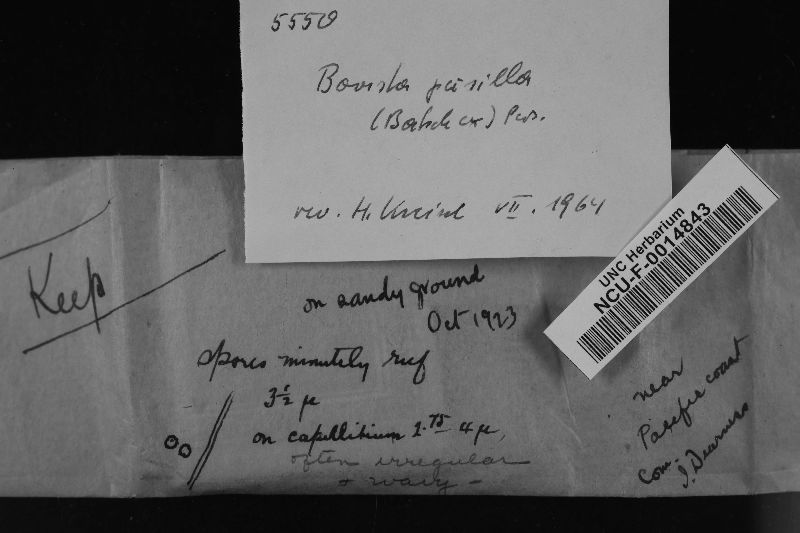 5550
Bovista pusilla
(Batsch ex) Pers.
rev. H. Kreisel VII. 1964
UNC Herbarium
NCU-F-0014843
Keep
on sandy ground
Oct 1923
spores minutely ruf
3½ µ
on capillitium 2.75 4 µ,
often irregular
+ wavy -
near
Pacific coast
com. J. Dearness